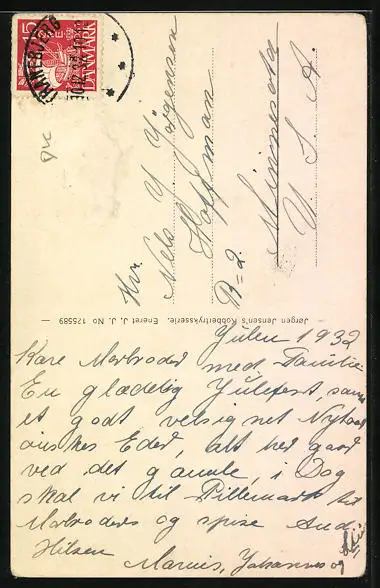 15
ØRE
DANMARK
Hr.
Nels J Jörgensen
Hoffman
B=2.
Minnesota
U. S. A.
— Jørgen Jensen's Kobbertryksserie. Eneret J. J. No 175589 —
Julen 1932
Kære Morbroder med Familie
En glædelig Julefest, samt
et godt velsignet Nytaar
ønskes Eder, alt her gaar
ved det gamle, i Dag
skal vi til Pillemark til
Morbroders og spise And
Hilsen
Marius, Johannes og